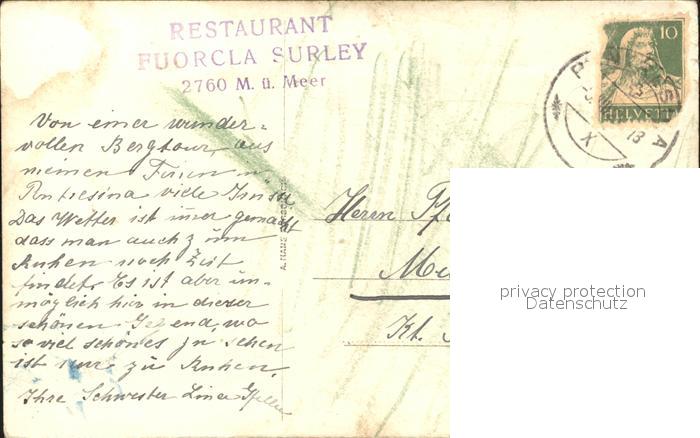 RESTAURANT
FUORCLA SURLEY
2760 M. ü. Meer
10
HELVETI
Von einer wunder=
vollen Bergtour, aus
meinen Ferien in
Pontresina viele Grüsse
Das Wetter ist immer gemacht
dass man auch z um
Ruhen noch Zeit
findet. Es ist aber un-
möglich hier in dieser
schönen Gegend, wo
so viel schönes zu sehen
ist nur zu Ruhen.
Ihre Schwester Lina
Herrn
Kt.
privacy protection
Datenschutz